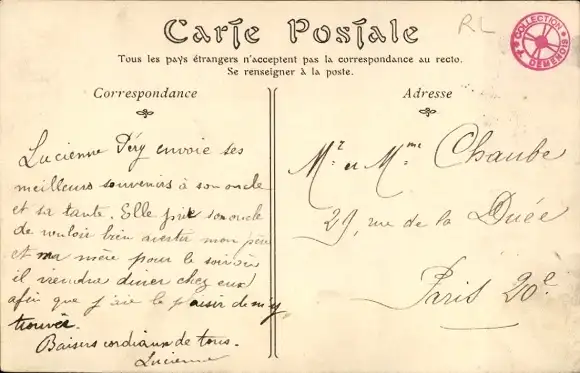 RL
COLLECTION
DEMENOIS
Carte Postale
Tous les pays étrangers n'acceptent pas la correspondance au recto.
Se renseigner à la poste.
Correspondance
Lucienne Péry envoie ses
meilleurs souvenirs à son oncle
et sa tante. Elle prie son oncle
de vouloir bien avertir mon père
et ma mère pour le soir où
il viendra diner chez eux
afin que j'aie le plaisir de m'y
trouver.
Baisers cordiaux de tous.
Lucienne
Adresse
Mr et Mme Chaube
29, rue de la Duée
Paris 20e